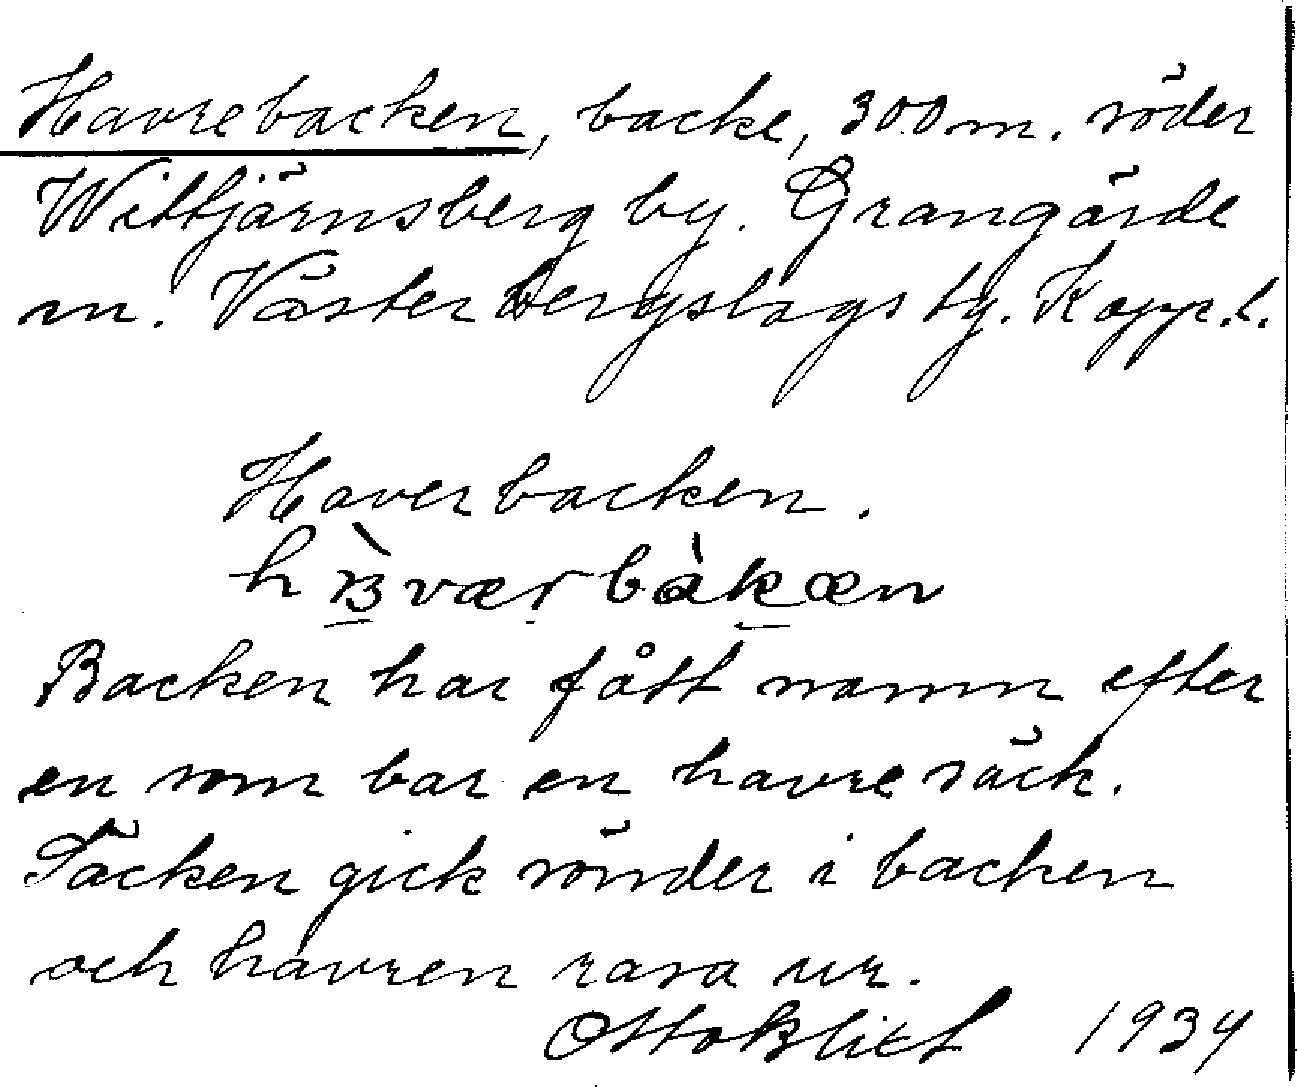 Havrebacken, backe, 300 m. söder
Wittjärnsberg by. Grangärde
m. Västerbergslags tg. Kopp.l.
Haverbacken.
Backen har fått namn efter
en som bar en havresäck.
Säcken gick sönder i backen
och havren rasa ur.
Otto Blixt 1934